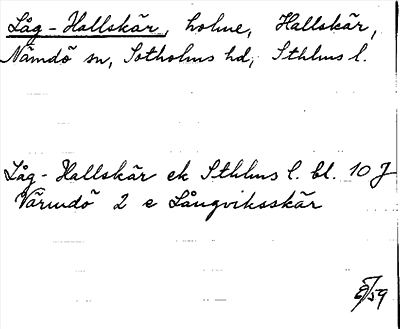 Låg-Hallskär, holme, Hallskär,
Nämdö sn, Sotholms hd, Sthlms l.
Låg-Hallskär ek Sthlms l. bl. 10 J
Värmdö 2 e Långviksskär
/59